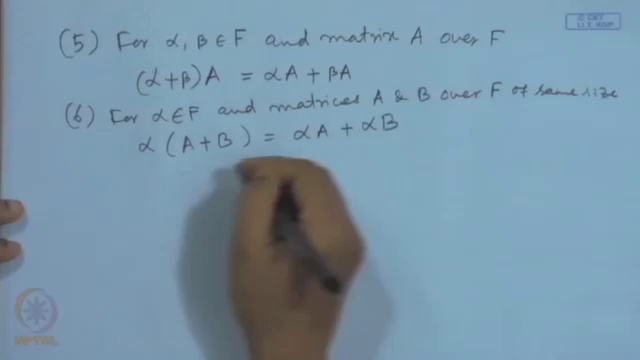 © CET
I.I.T. KGP
(5) For α, β ∈ F and matrix A over F
(α+β)A = αA + βA
(6) For α∈F and matrices A & B over F of same size
α (A+B) = αA + αB
NPTEL